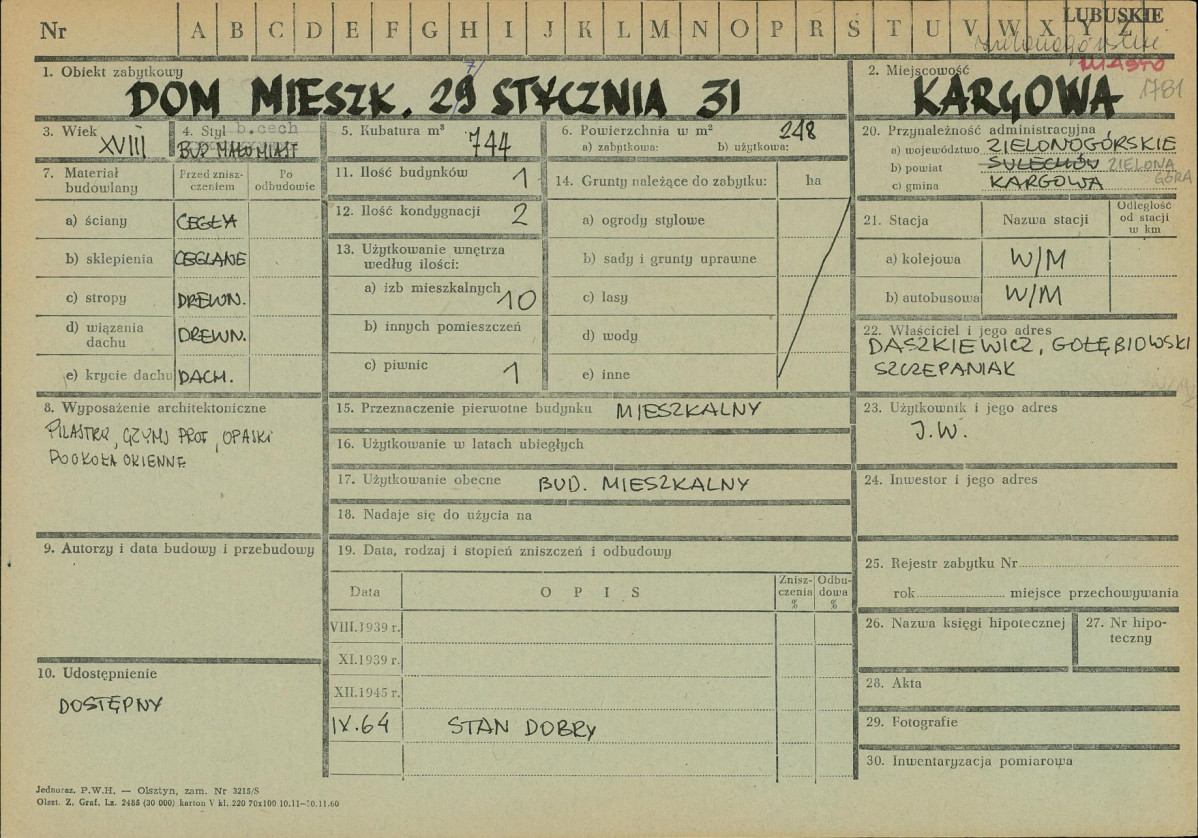 Nr A B C D E F G H I J K L M N O P R S T U V W X Y Z
LUBUSKIE
MIASTO
1781
1. Obiekt zabytkowy
DOM MIESZK. 29 STYCZNIA 31
2. Miejscowość
KARGOWA
3. Wiek
XVIII
4. Styl b.cech
BUD MAŁOMIAST
5. Kubatura m³
744
6. Powierzchnia w m² 248
a) zabytkowa: b) użytkowa:
7. Materiał budowlany
Przed znisz-
czeniem
Po
odbudowie
a) ściany CEGŁA
b) sklepienia CEGLANE
c) stropy DREWN.
d) wiązania
dachu DREWN.
e) krycie dachu DACH.
8. Wyposażenie architektoniczne
PILASTRY, GZYMS PROF, OPASKI
DOOKOŁA OKIENNE
9. Autorzy i data budowy i przebudowy
10. Udostępnienie
DOSTĘPNY
11. Ilość budynków 1
12. Ilość kondygnacji 2
13. Użytkowanie wnętrza
według ilości:
a) izb mieszkalnych 10
b) innych pomieszczeń
c) piwnic 1
14. Grunty należące do zabytku: ha
a) ogrody stylowe
b) sady i grunty uprawne
c) lasy
d) wody
e) inne
15. Przeznaczenie pierwotne budynku MIESZKALNY
16. Użytkowanie w latach ubiegłych
17. Użytkowanie obecne BUD. MIESZKALNY
18. Nadaje się do użycia na
19. Data, rodzaj i stopień zniszczeń i odbudowy
Data O P I S
Znisz-
czenia
%
Odbu-
dowa
%
VIII.1939 r.
XI.1939 r.
XII.1945 r.
IX.64 STAN DOBRY
20. Przynależność administracyjna
a) województwo ZIELONOGÓRSKIE
b) powiat SULECHÓW ZIELONA
GÓRA
c) gmina KARGOWA
21. Stacja Nazwa stacji
Odległość
od stacji
w km
a) kolejowa W/M
b) autobusowa W/M
22. Właściciel i jego adres
DASZKIEWICZ, GOŁĘBIOWSKI
SZCZEPANIAK
23. Użytkownik i jego adres
J.W.
24. Inwestor i jego adres
25. Rejestr zabytku Nr
rok miejsce przechowywania
26. Nazwa księgi hipotecznej
27. Nr hipo-
teczny
28. Akta
29. Fotografie
30. Inwentaryzacja pomiarowa
Jednoraz. P.W.H. — Olsztyn, zam. Nr 3215/S
Olszt. Z. Graf. Lz. 2485 (30 000) karton V kl. 220 70x100 10.11—30.11.60